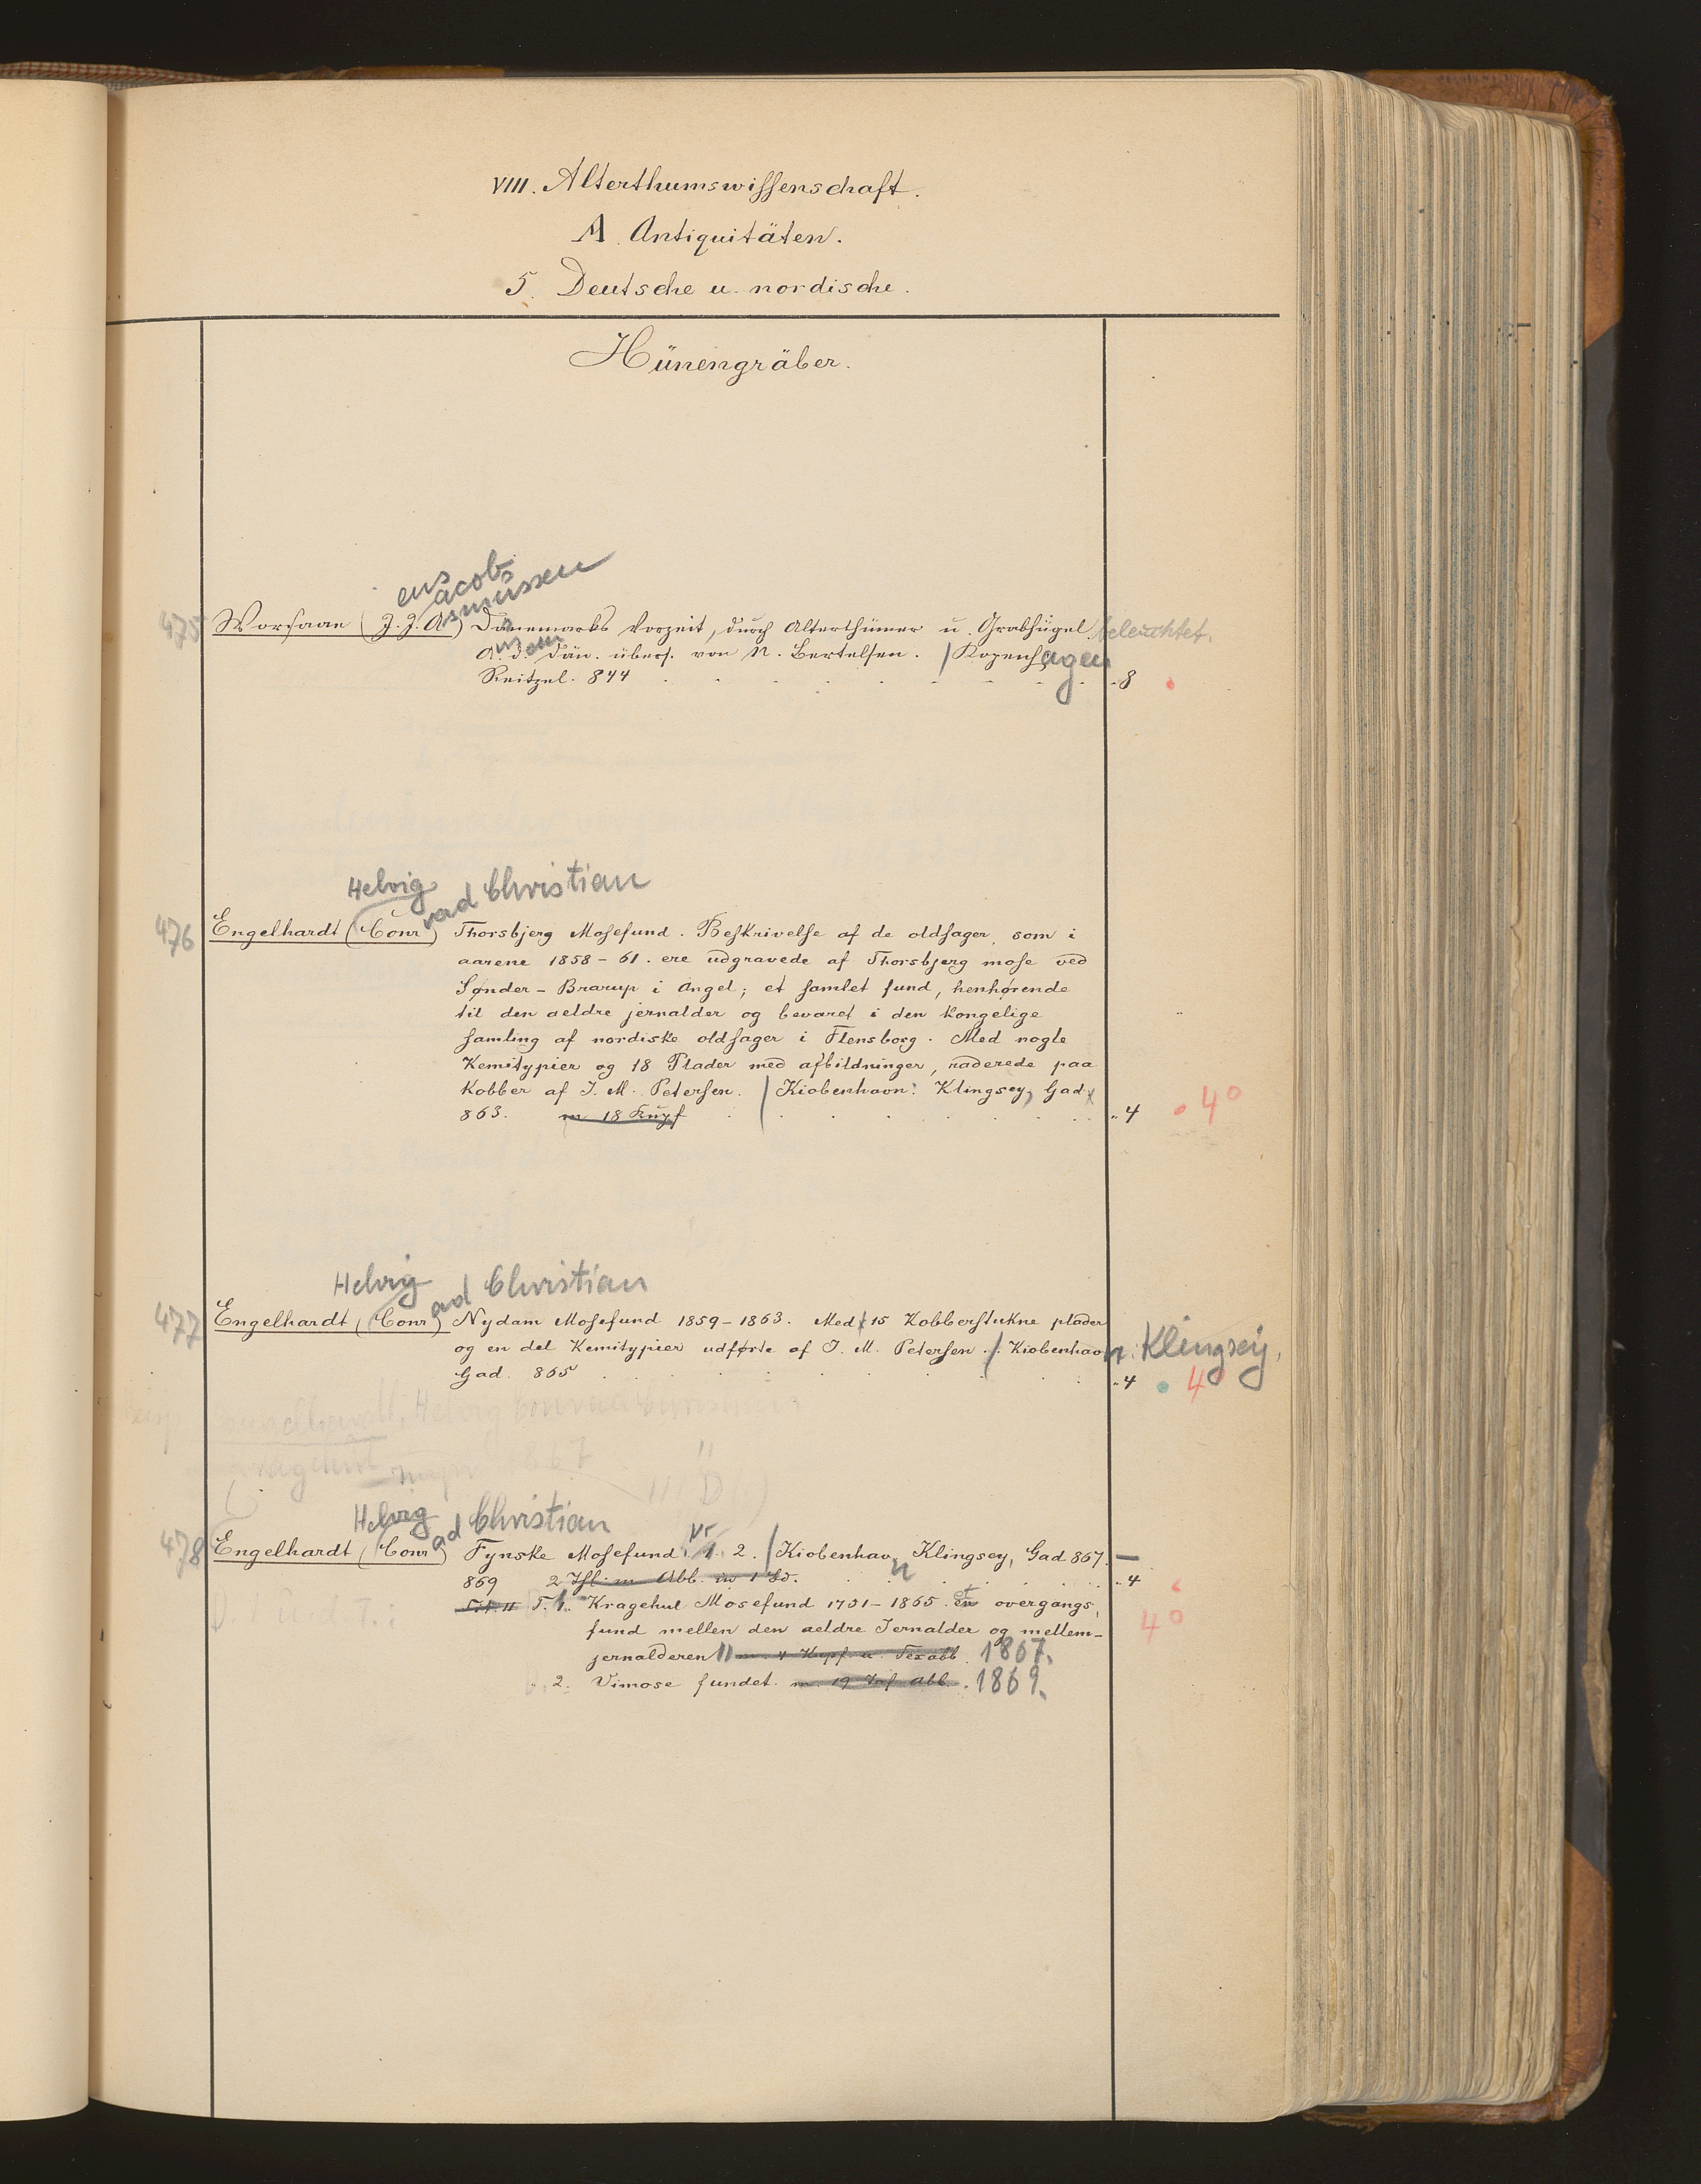 VIII. Alterthumswissenschaft.
A. Antiquitäten.
5. Deutsche u. nordische.
Hünengräber.
ens acob smussen
475 Worsaae (J. J. A.) Dänemarks Vorzeit, durch Alterthümer u. Grabhügel beleuchtet.
A. d. Dän. übers. von N. Bertelsen. / Kopenhagen
Reitzel. 844 8
Helvig rad Christian
476 Engelhardt (Conr) Thorsbjerg Mosefund. Beskrivelse af de oldsager, som i
aarene 1858-61. ere udgravede af Thorsbjerg mose ved
Sønder-Brarup i Angel; et samlet fund, henhørende
til den aeldre jernalder og bevaret i den kongelige
samling af nordiske oldsager i Flensborg. Med nogle
Kemitypier og 18 Plader med afbildninger, raderede paa
Kobber af J. M. Petersen. / Kiobenhavn: Klingsey, Gad
863. m 18 Kupf 4 4°
Helvig ad Christian
477 Engelhardt (Conr) Nydam Mosefund 1859-1863. Med 15 Kobberstukne plader
og en del Kemitypier udførte af J. M. Petersen. / Kiobenhavn: Klingsey,
Gad. 865 4 4°
Helvig ad Christian
478 Engelhardt (Conr) Fynske Mosefund. Nr 1. 2. / Kiobenhavn Klingsey, Gad 867. –
869 2 Thl. m Abb. in 1 Bd. 4
T. 1. Kragehul Mosefund 1751-1865. et overgangs 4°
fund mellen den aeldre Jernalder og mellem-
jernalderen m. 4 Kupf. u. Texabb. 1867.
2. Vimose fundet. m. 19 Taf Abb. 1869.